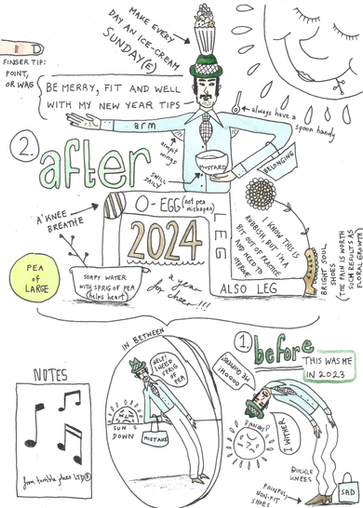 MAKE EVERY
DAY AN ICE-CREAM
SUNDAY(E)
FINGER TIP:
POINT,
OR WAG
BE MERRY, FIT AND WELL
WITH MY NEW YEAR TIPS
always have a
spoon handy
arm
armpit
wings
2.
after
MUSTARD
BELONGING
SWILL
DAILY
A'KNEE
BREATHE
O-EGG (not pea
misshapen)
2024
LEG
ALSO LEG
I KNOW THIS IS
RUBBISH, BUT I'M A
BIT OUT OF PRACTICE
AND NEED TO
IMPROVE
BRIGHT SOUL
SHOES
(THE PAIN IS WORTH
SUCH RESULTS AS
FLORAL GROWTH)
PEA OF
LARGE
SOAPY WATER
WITH SPRIG OF PEA
(helps heart)
a year
for cheer!!!
IN BETWEEN
1.
before
THIS WAS ME
IN 2023
NOTES
HELP!
I NEED
SPRIG OF
PEA
SUN
DOWN
MUSTARD
I WITHER
BUCKLE
KNEES
PAINFUL,
NON-FIT
SHOES
SAD